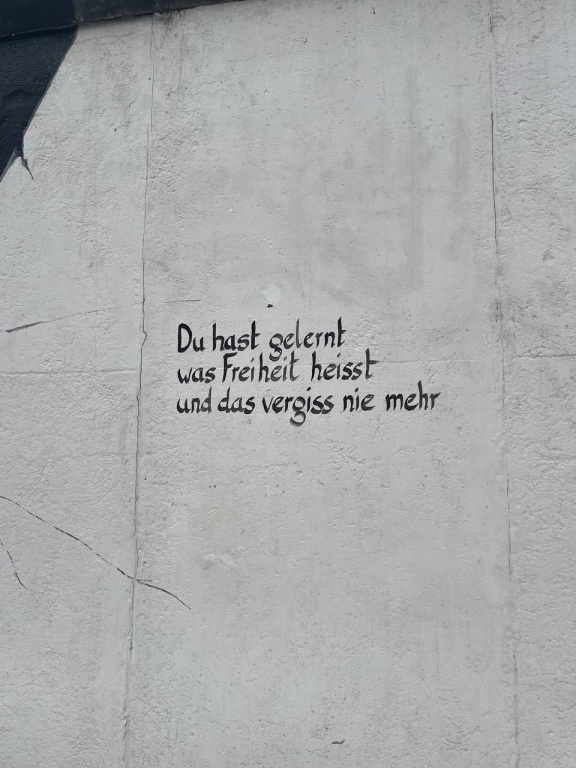 Du hast gelernt
was Freiheit heisst
und das vergiss nie mehr